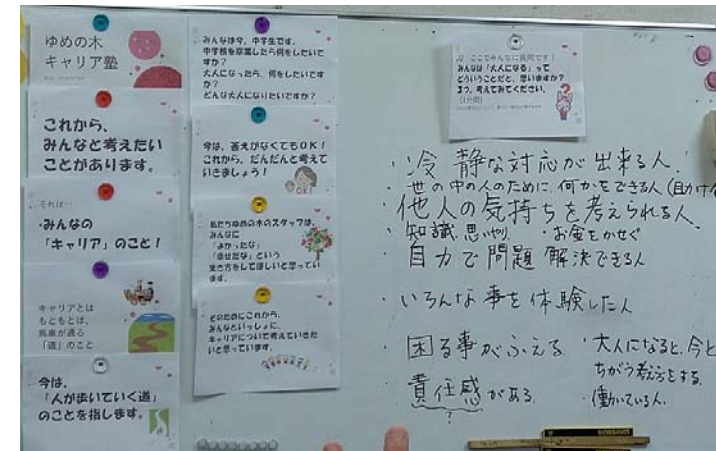 ゆめの木
キャリア塾
これから、
みんなと考えたい
ことがあります。
それは…
・みんなの
「キャリア」のこと!
キャリアとは
もともとは、
馬車が通る
「道」のこと
今は、
「人が歩いていく道」
のことを指します。
みんなは今、中学生です。
中学校を卒業したら何をしたいで
すか?
大人になったら、何をしたいです
か?
どんな大人になりたいですか?
今は、答えがなくてもOK!
これから、だんだんと考えて
いきましょう!
OK!
私たちゆめの木のスタッフは、
みんなに
「よかったな」
「幸せだな」という
生き方をしてほしいと思ってい
ます。
そのためにこれから、
みんなといっしょに、
キャリアについて考えていきた
いと思っています。
ここでみんなに質問です!
みんなは「大人になる」って
どういうことだと、思いますか?
まず、考えてみてください。
(1分間)
・冷静な対応が出来る人
・世の中の人のために何かをできる人(助け
・他人の気持ちを考えられる人
・知識、思いやり ・お金をかせぐ
・自力で問題解決できる人
・いろんな事を体験した人
・困る事がふえる
・責任感がある
?
・大人になると、今と
ちがう考え方をする
・働いている人